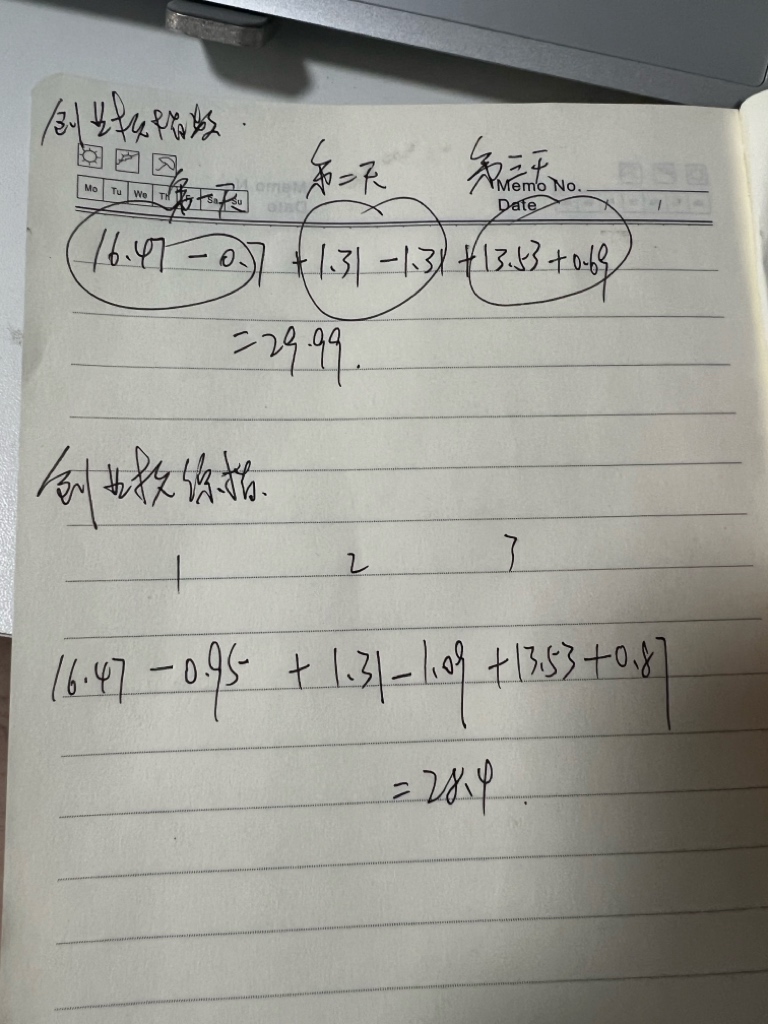 创业板指数.
第一天 第二天 第三天
Mo Tu We Th Sa Su
Memo No.
Date
16.47 - 0.7 + 1.31 - 1.31 + 13.53 + 0.69
= 29.99.
创业板综指.
1 2 3
16.47 - 0.95 + 1.31 - 1.09 + 13.53 + 0.87
= 28.4.